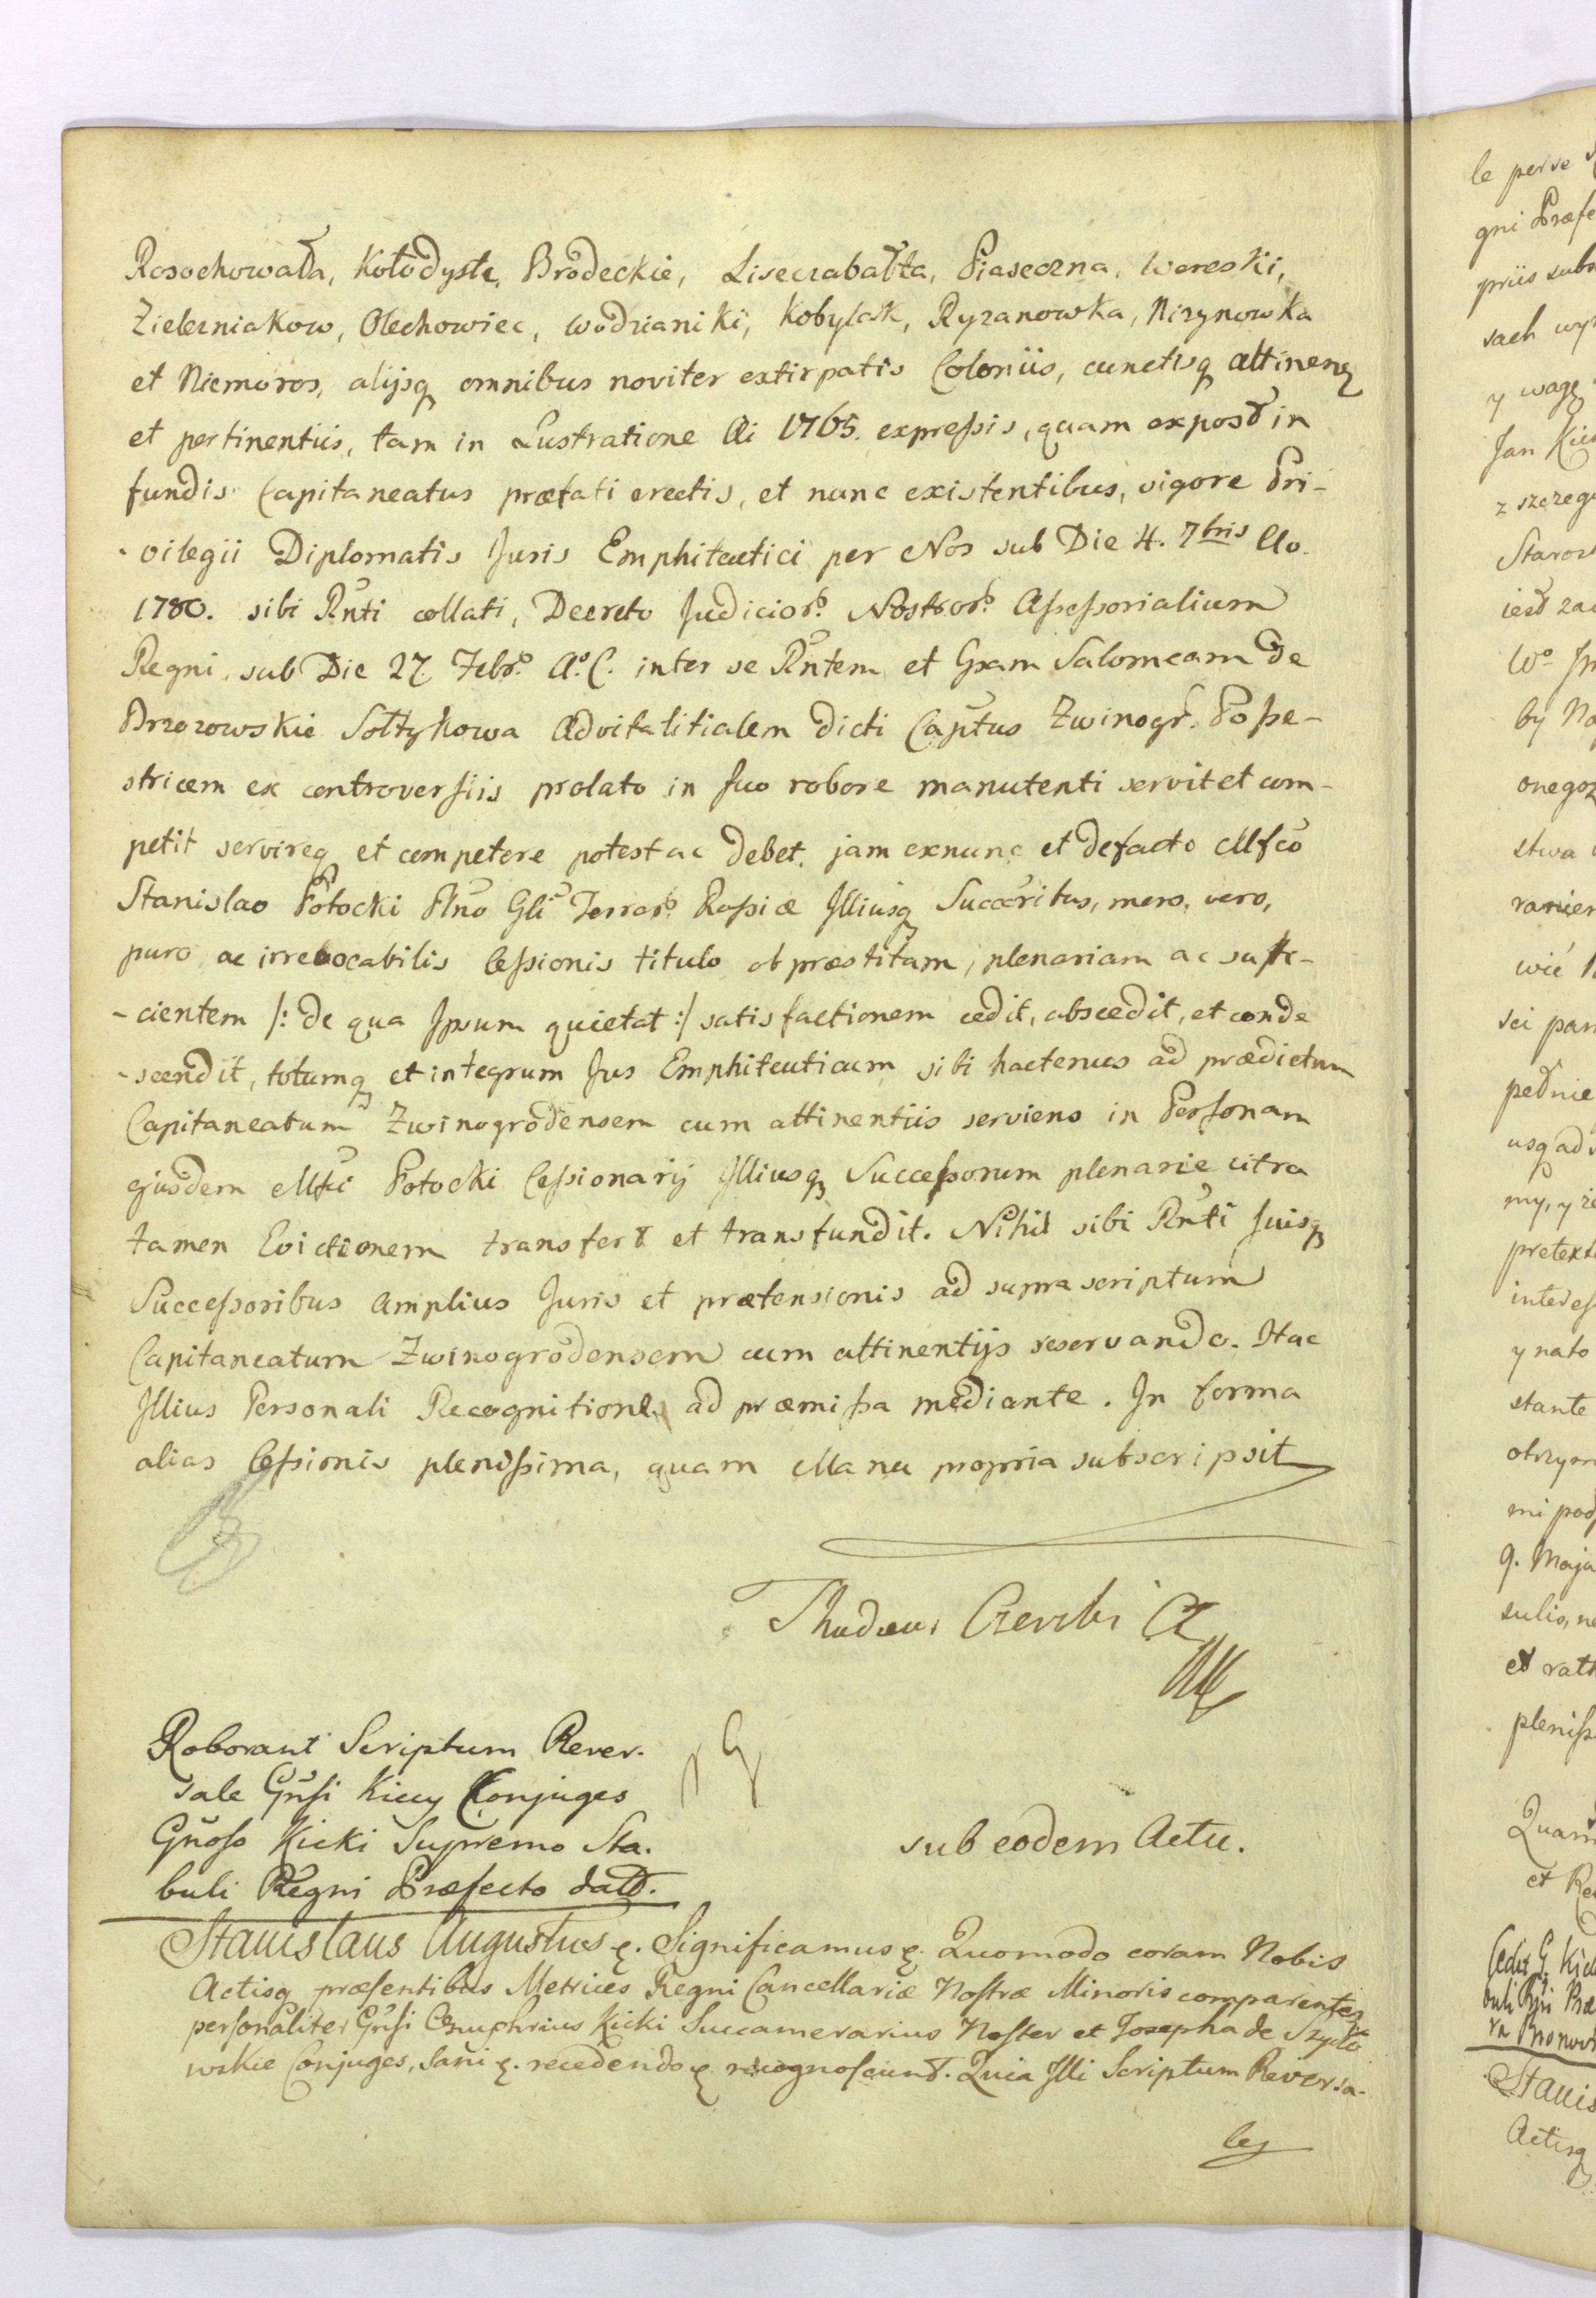 Rosochowatka, Kołodyste, Brodeckie, Lisecrabałta, Piaseczna, Wereski,
Zielezniakow, Olechowiec, Wodzianiki, Kobylak, Ryzanowka, Nizynowka
et Niemoros, alijsq omnibus noviter extirpatis Coloniis, cunctisq attinenq
et pertinentiis, tam in Lustratione Ai 1765. expressis, quam expost in
fundis Capitaneatus præfati erectis, et nunc existentibus, vigore Pri-
-vilegii Diplomatis Juris Emphiteutici per Nos sub Die 4. 7bris Ao.
1780. sibi Rnti collati, Decreto Judicior. Nostror. Assessorialium
Regni, sub Die 27. Febr. A.C. inter se Rntem et Gsam Salomeam de
Brzozowskie Sołtykowa Advitalitialem dicti Captus Zwinogr. Posse-
stricem ex controversiis prolato in suo robore manutenti servit et com-
petit servireq et competere potest ac debet. jam exnunc et defacto Mfco
Stanislao Potocki Plno Gli Terrar. Russiæ Illiusq Succoribus, mero, vero,
puro, ac irrevocabilis Cessionis titulo ob præstitam, plenariam ac suffi-
-cientem /: de qua Ipsum quietat :/ satisfactionem cedit, abscedit, et conde
-scendit, totumq et integrum Jus Emphiteuticum sibi hactenus ad prædictum
Capitaneatum Zwinogrodensem cum attinentiis serviens in Personam
ejusdem Mfci Potocki Cessionarij Illiusq Successorum plenarie citra
tamen Evictionem transfert et transfundit. Nihil sibi Rnti suisq
Successoribus amplius Juris et prætensionis ad suprascriptum
Capitaneatum Zwinogrodensem cum attinentijs reservando. Hac
Illius Personali Recognitione ad præmissa mediante. In forma
alias Cessionis plenissima, quam Manu propria subscripsit
Thadeus Czacki
Roborant Scriptum Rever-
sale Gnsi Kiccy Conjuges
Gnoso Kicki Supremo Sta-
buli Regni Præfecto datt.
sub eodem Actu.
Stanislaus Augustus &. Significamus &. Quomodo coram Nobis
Actisq præsentibus Metrices Regni Cancellariæ Nostræ Minoris comparentes
personaliter Gnsi Onuphrius Kicki Succamerarius Noster et Josepha de Szydło
wskie Conjuges, sani &. recedendo &. recognoscunt. Quia Illi Scriptum Reversa-
le
le per se
gni Præfe
priis subs
sach wy
y wagę
Jan Kic
z szczeg
Staros
iest za
by No
onegoz
stwa
ranie
wić
sci pan
pednie
usq ad
my, y ze
pretext
interes
y nato
stante
otrzym
mi pod
9. Maja
sulio, ne
et rati
pleniss
Quam
et Re
Cedit G. Kic
buli Rgni Præ
ra Bronow
Stanis
Actisq